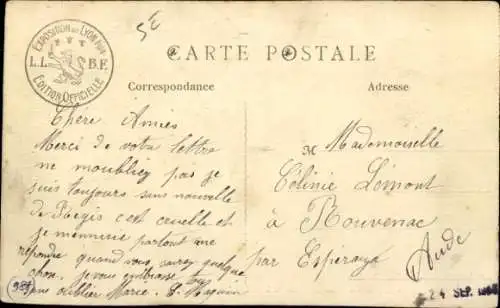 EXPOSITION DE LYON 1914
L.L. B.F.
EDITION OFFICIELLE
CARTE POSTALE
Correspondance
Adresse
Chère Amies
Merci de votre lettre
ne moubliey pas je
suis toujours sans nouvelle
de Régis c'est cruelle et
je m'ennuie partout une
réponse quand vous aurey quelque
chose. je vous embrasse
sans oublier Marie.
M Mademoiselle
Célinie Lémont
à Rouvenac
par Esperaza
Aude
24 SEP.
981